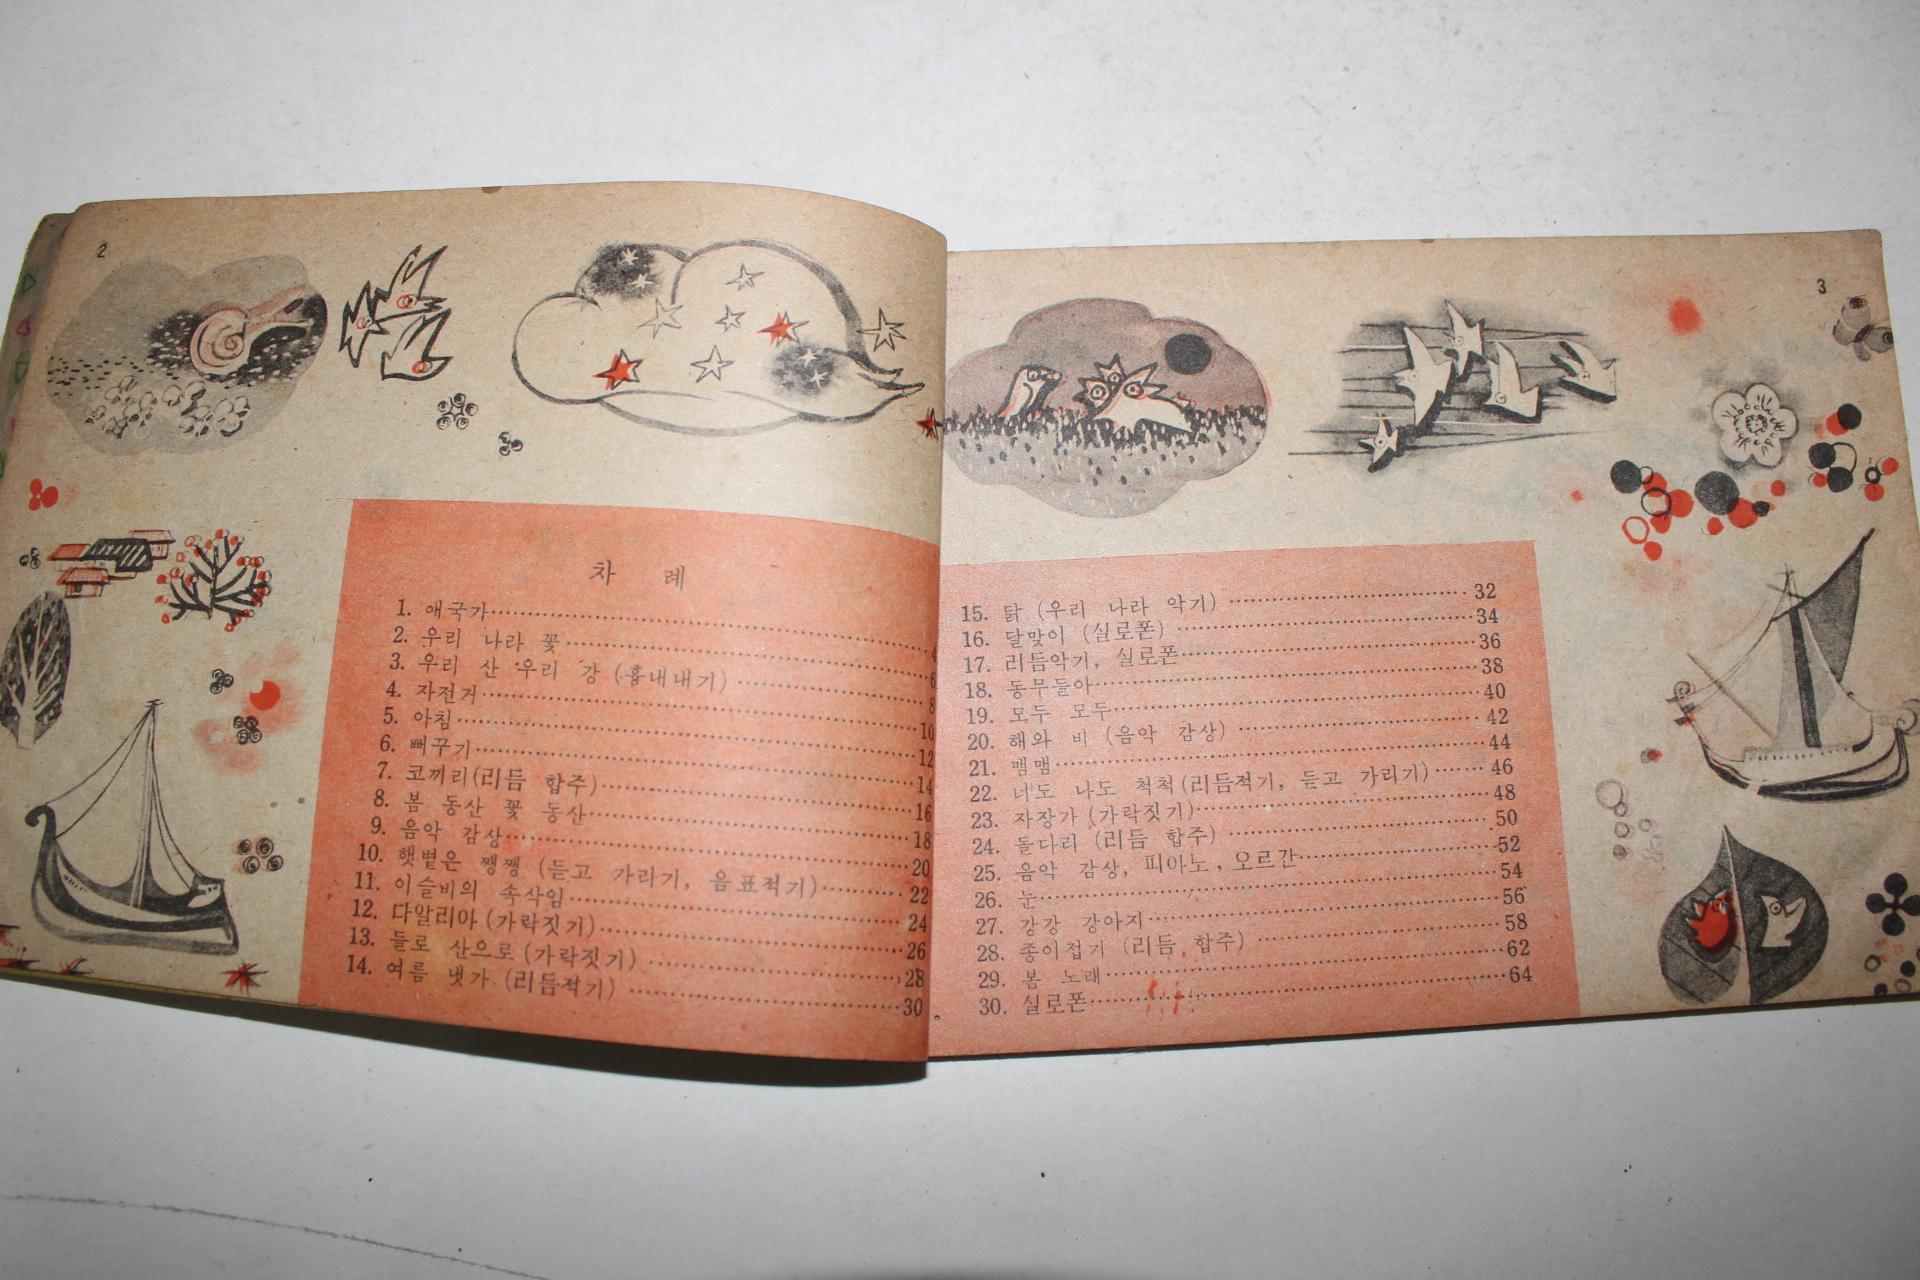 2
차 례
1. 애국가 4
2. 우리 나라 꽃 6
3. 우리 산 우리 강 (흉내내기) 8
4. 자전거 10
5. 아침 12
6. 뻐꾸기 14
7. 코끼리(리듬 합주) 16
8. 봄 동산 꽃 동산 18
9. 음악 감상 20
10. 햇볕은 쨍쨍 (듣고 가라기, 음표적기) 22
11. 이슬비의 속삭임 24
12. 다알리아 (가락짓기) 26
13. 들로 산으로 (가락짓기) 28
14. 여름 냇가 (리듬적기) 30
3
15. 닭 (우리 나라 악기) 32
16. 달맞이 (실로폰) 34
17. 리듬악기, 실로폰 36
18. 동무들아 38
19. 모두 모두 40
20. 해와 비 (음악 감상) 42
21. 맴맴 44
22. 너도 나도 척척 (리듬적기, 듣고 가리기) 46
23. 자장가 (가락짓기) 48
24. 돌다리 (리듬 합주) 50
25. 음악 감상, 피아노, 오르간 52
26. 눈 54
27. 강강 강아지 56
28. 종이접기 (리듬 합주) 58
29. 봄 노래 62
30. 실로폰 64